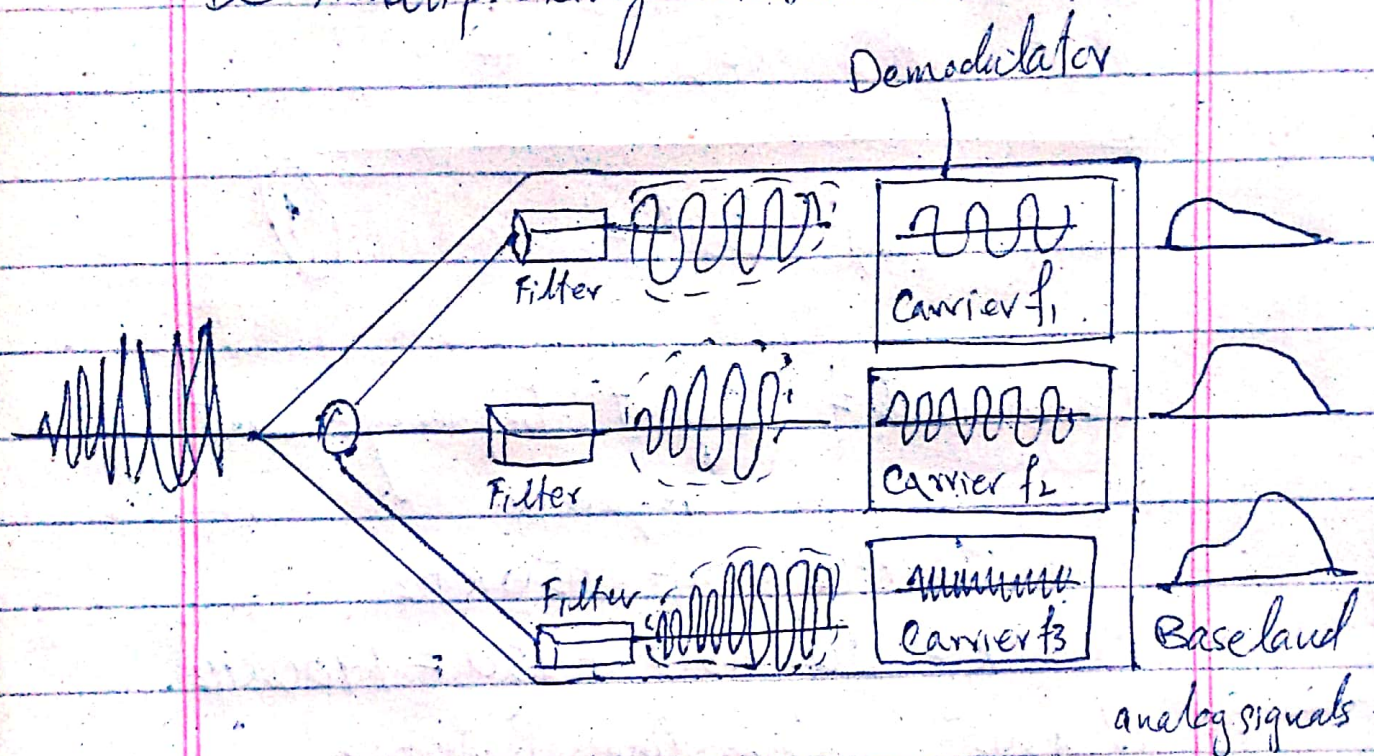 Demodulator
Filter
Carrier f1
Filter
Carrier f2
Filter
Carrier f3
Baseband
analog signals